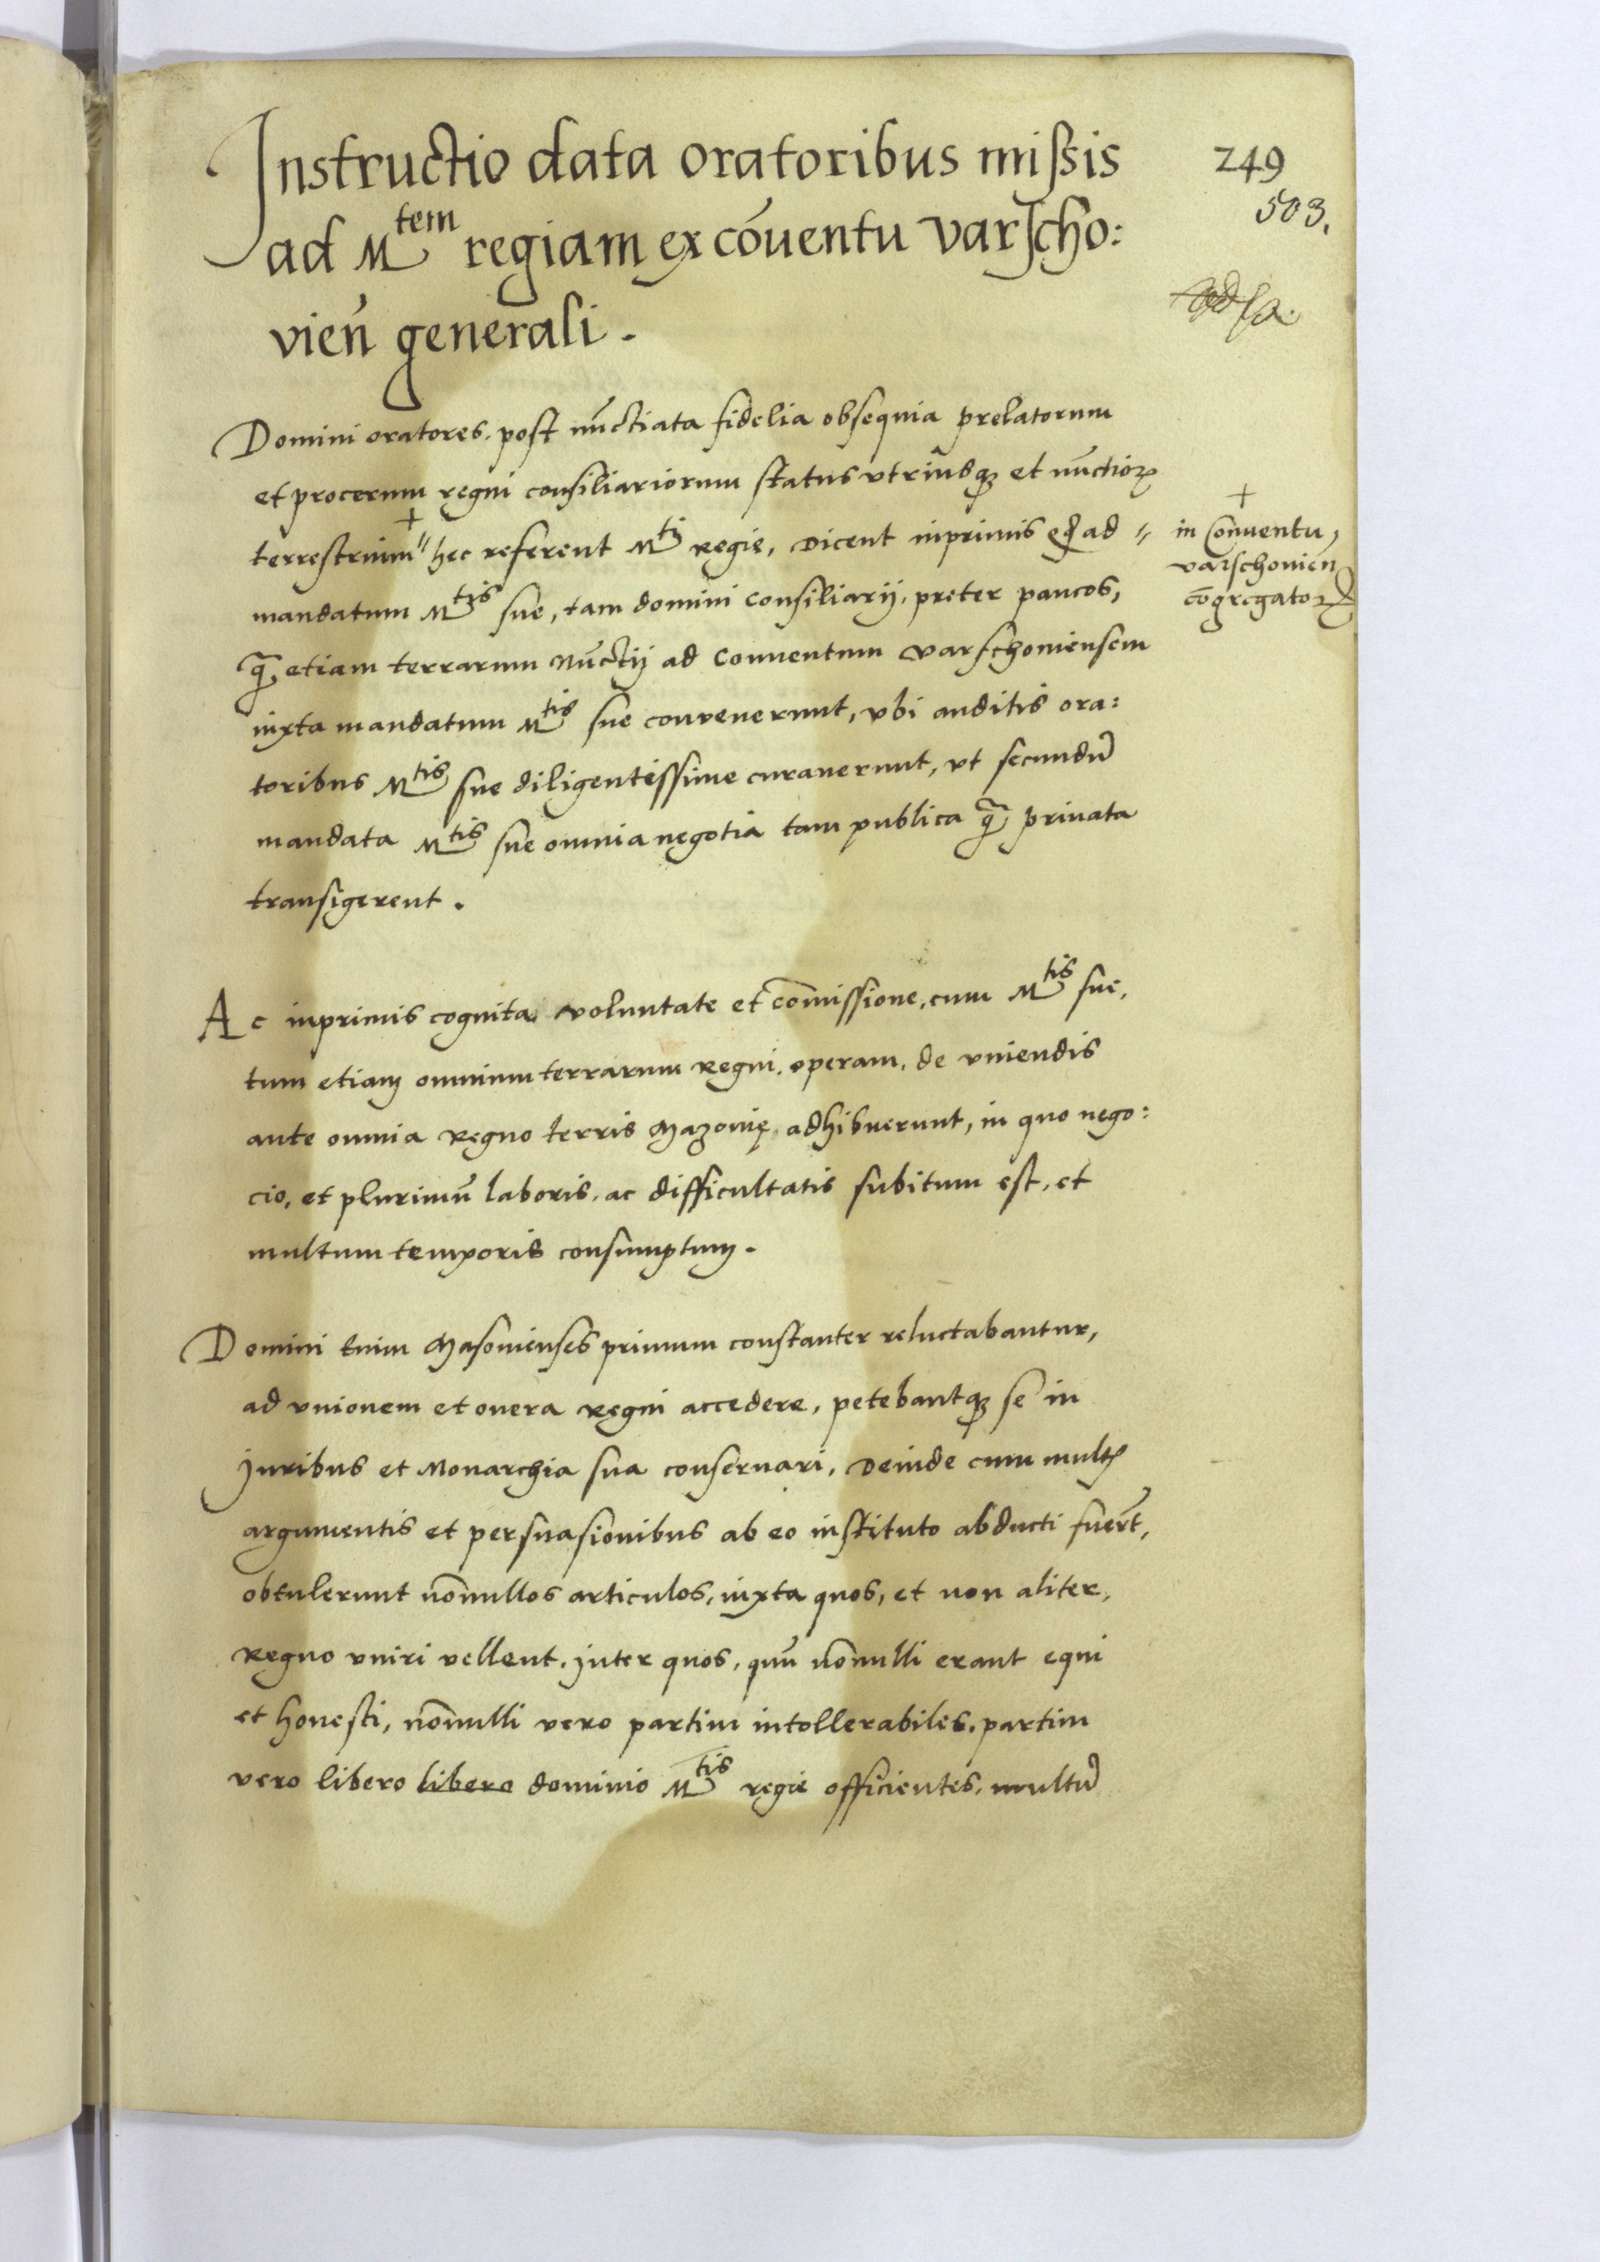 Instructio data oratoribus missis
ad M^tem regiam ex cōuentu varscho:
vień generali.
249
503.
Domini oratores, post nūctiata fidelia obsequia prelatorum
et procerum regni consiliariorum status vtriusq3 et nūctioꝝ
terrestrium + hec referent M^ti Regie, Dicent inprimis ꝙ ad
+
in Conuentu
varschouień
cōgregatoꝝ
mandatum M^tis sue, tam domini consiliarij, preter paucos,
q̄ etiam terrarum Nūctij ad Conuentum varschouiensem
iuxta mandatum M^tis sue convenerunt, vbi auditis ora:
toribus M^tis sue diligentissime curauerunt, vt secundū
mandata M^tis sue omnia negotia tam publica q̄ priuata
transigerent.
Ac inprimis cognita voluntate et cōmissione, cum M^tis sue,
tum etiam omnium terrarum Regni, operam, de vniendis
ante omnia Regno terris Mazouię adhibuerunt, in quo nego:
cio, et plurimū laboris, ac difficultatis subitum est, et
multum temporis consumptum.
Domini enim Masouienses primum constanter reluctabantur,
ad vnionem et onera Regni accedere, petebantq3 se in
Juribus et Monarchia sua conseruari, Deinde cum multꝭ
argumentis et persuasionibus ab eo instituto abducti fuerūt,
obtulerunt nōnullos articulos, iuxta quos, et non aliter,
Regno vniri vellent. Inter quos, quū nōnulli erant equi
et honesti, nōnulli vero partim intollerabiles, partim
vero libero libero dominio M^tis regie officientes, multū